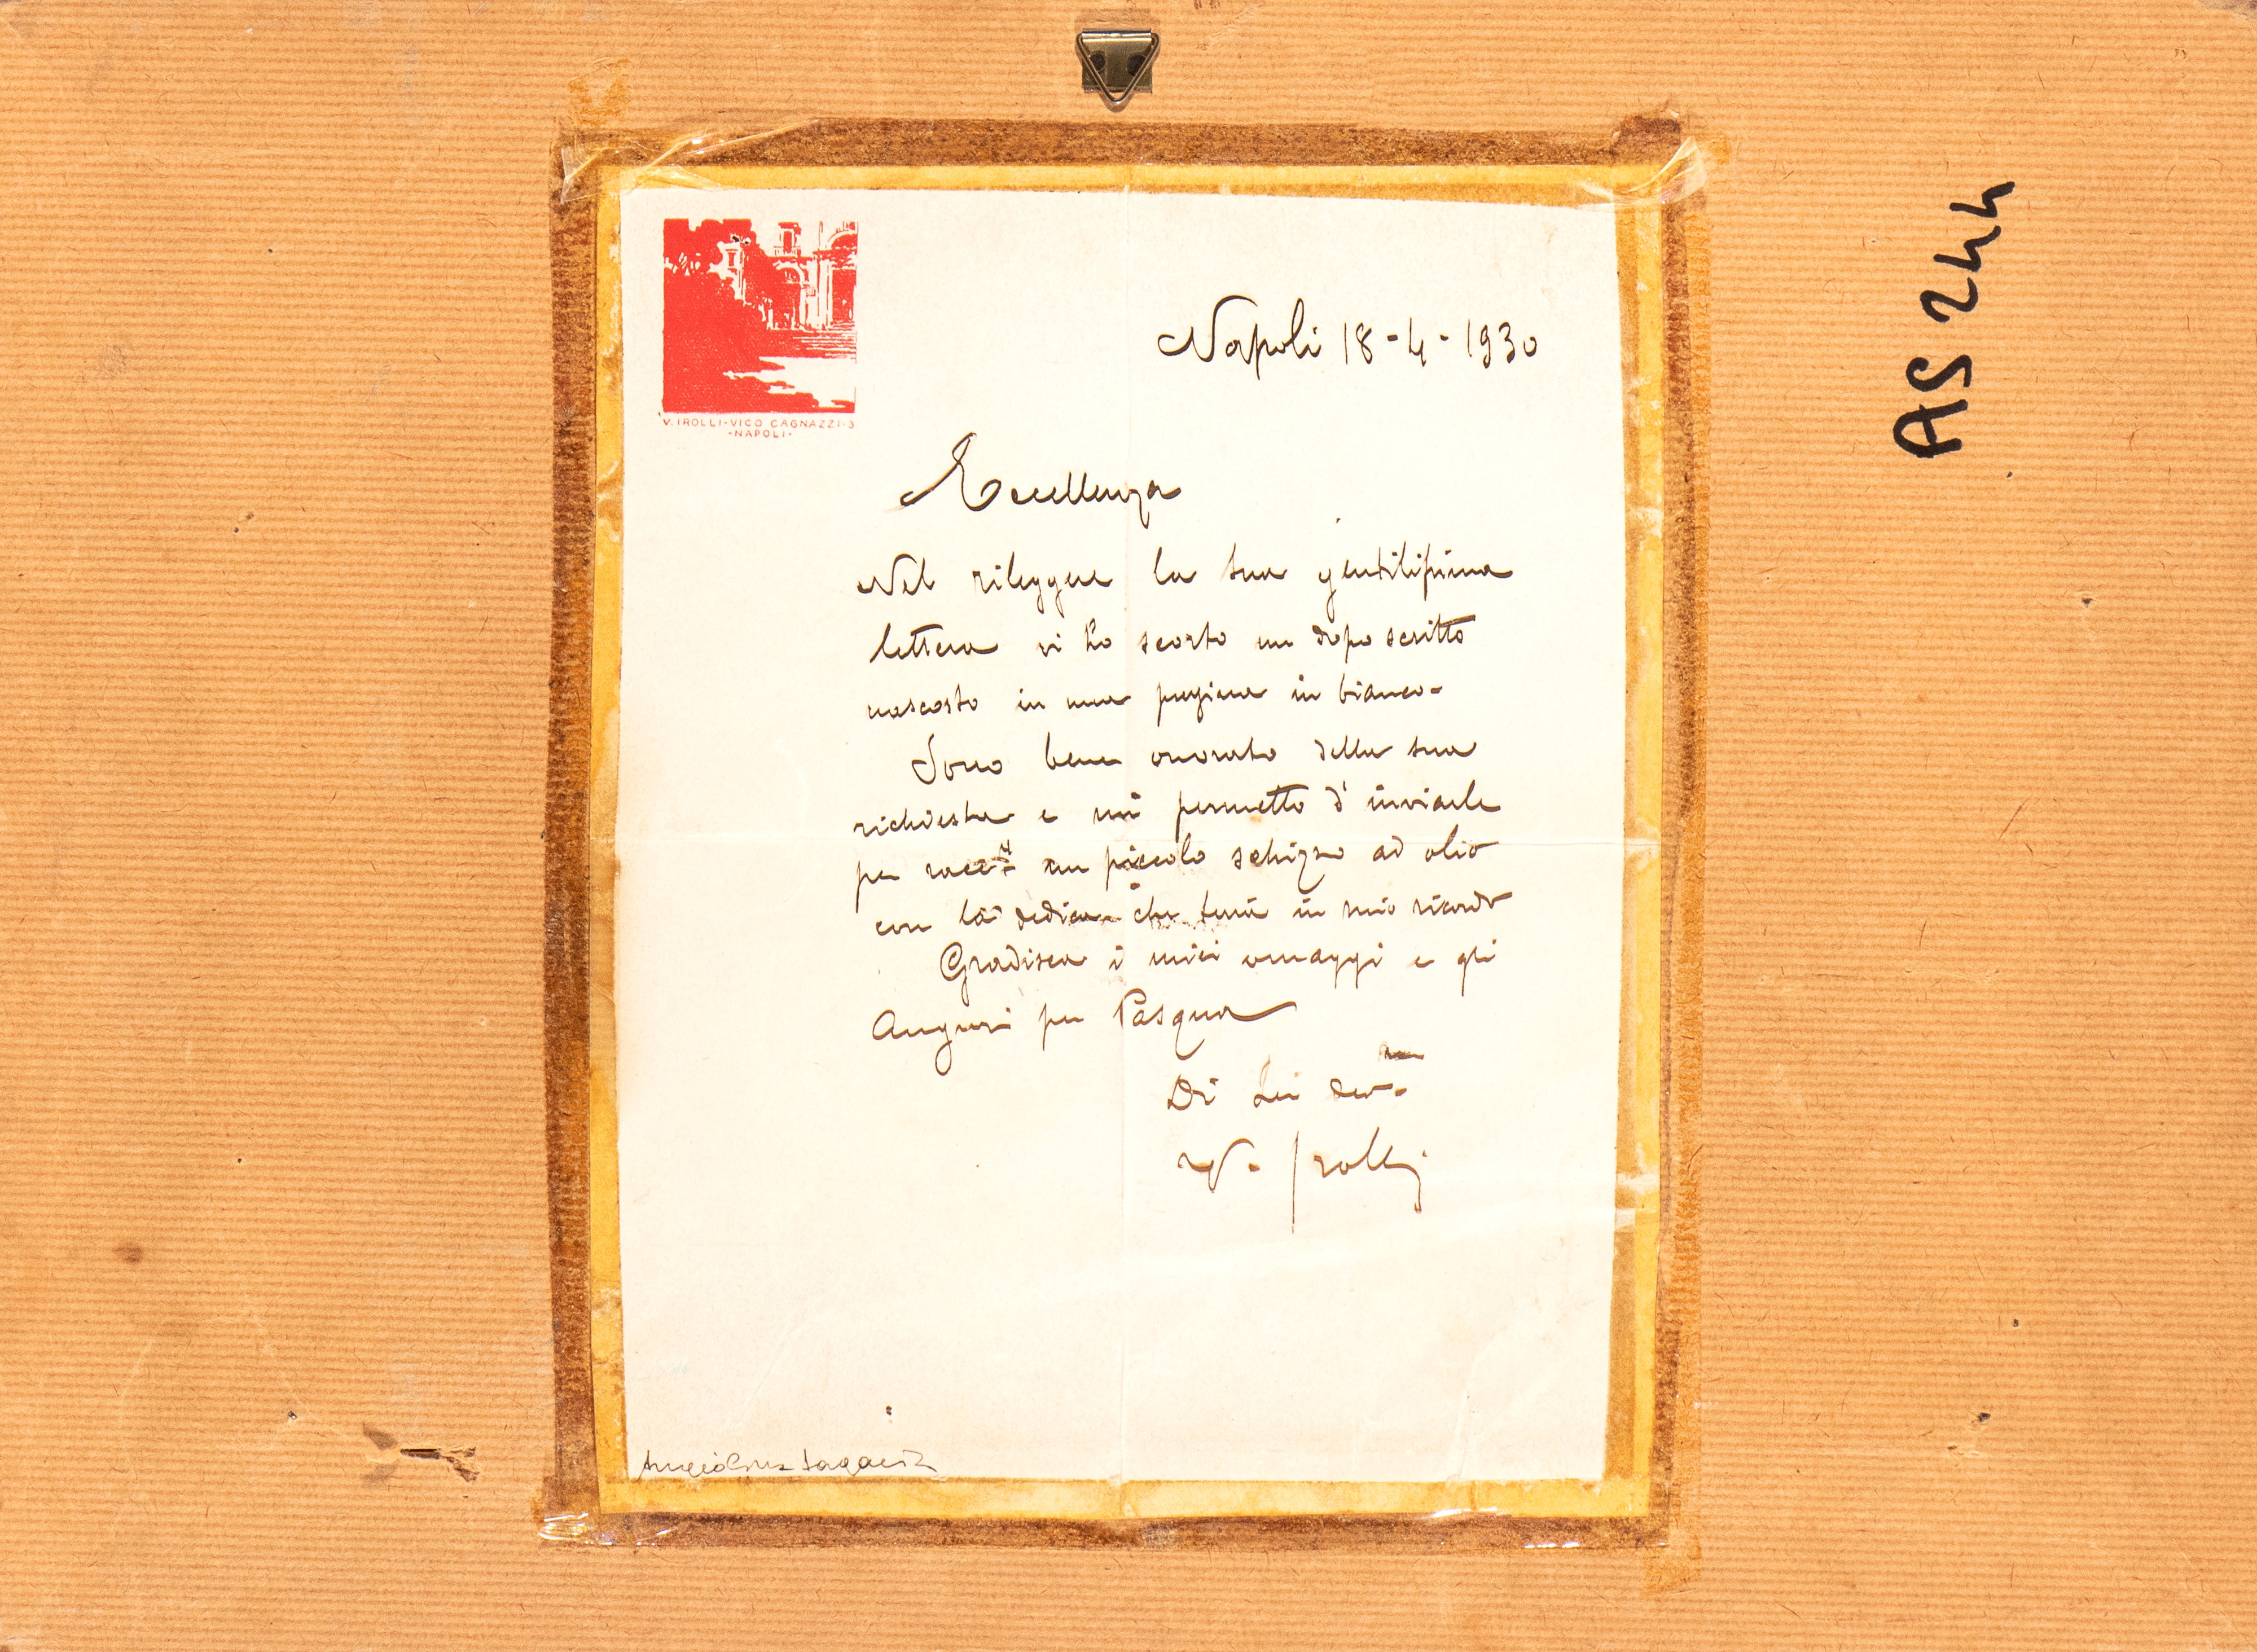 V. IROLLI-VICO CAGNAZZI-3
-NAPOLI-
Napoli 18-4-1930
AS 244
Eccellenza
Nel rileggere la sua gentilissima
lettera vi ho scorto un dopo scritto
nascosto in una pagina in bianco-
Sono bene onorato della sua
richiesta e mi permetto d'inviarle
per racc. un piccolo schizzo ad olio
con la dedica che terrà in mio ricordo
Gradisca i miei omaggi e gli
Auguri per Pasqua
Di Lei dev.mo
V. Irolli